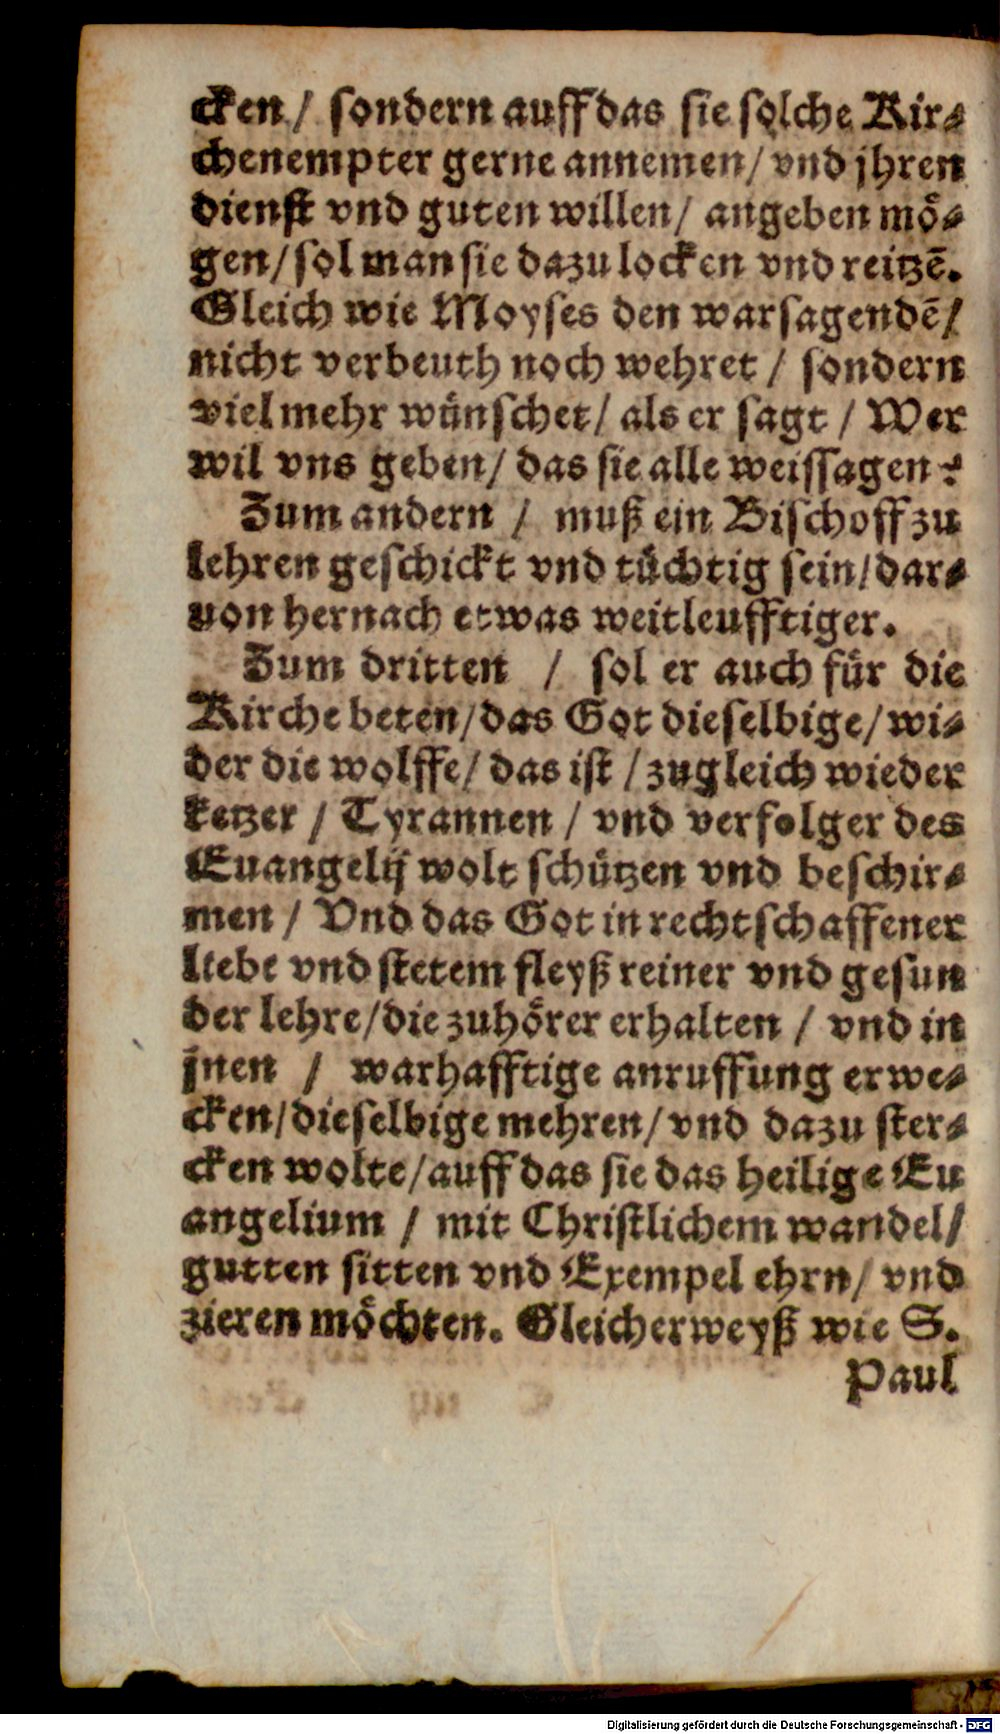 cken / sondern auff das sie solche Kir⸗
chenempter gerne annemen / vnd jhren
dienst vnd guten willen / angeben mö⸗
gen / sol man sie dazu locken vnd reitzē.
Gleich wie Moyses den warsagendē /
nicht verbeuth noch wehret / sondern
viel mehr wünschet / als er sagt / Wer
wil vns geben / das sie alle weissagen ?
Zum andern / muß ein Bischoff zu
lehren geschickt vnd tüchtig sein / dar⸗
uon hernach etwas weitleufftiger.
Zum dritten / sol er auch für die
Kirche beten / das Got dieselbige / wi⸗
der die wolffe / das ist / zugleich wieder
ketzer / Tyrannen / vnd verfolger des
Euangelij wolt schützen vnd beschir⸗
men / Vnd das Got in rechtschaffener
liebe vnd stetem fleyß reiner vnd gesun
der lehre / die zuhörer erhalten / vnd in
jnen / warhafftige anruffung erwe⸗
cken / dieselbige mehren / vnd dazu ster⸗
cken wolte / auff das sie das heilige Eu
angelium / mit Christlichem wandel /
gutten sitten vnd Exempel ehrn / vnd
zieren möchten. Gleicherweyß wie S.
Paul
Digitalisierung gefördert durch die Deutsche Forschungsgemeinschaft - DFG